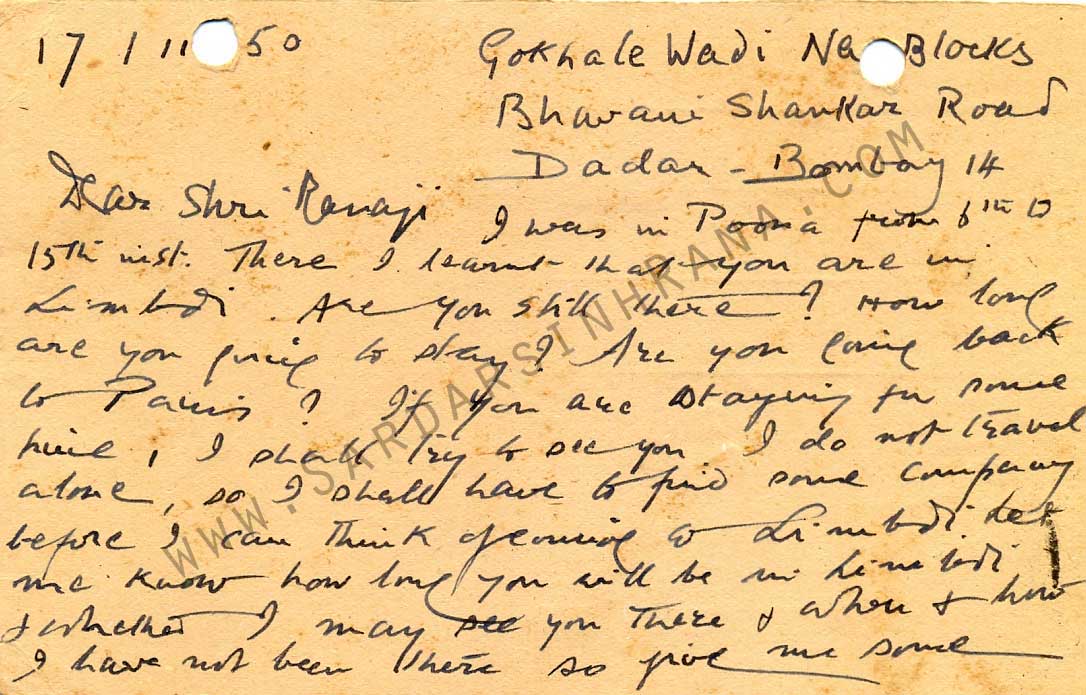 17/11/50
Gokhale Wadi New Blocks
Bhavani Shankar Road
Dadar - Bombay 14
Dear Shri Ranaji
I was in Poona from 6th to
15th inst. There I learnt that you are in
Limbdi. Are you still there? How long
are you going to stay? Are you going back
to Paris? If you are staying for some
time, I shall try to see you. I do not travel
alone, so I shall have to find some company
before I can think of coming to Limbdi. Let
me know how long you will be in Limbdi
& whether I may see you there & when & how
I have not been there so give me some
WWW.SARDARSINHRANA.COM